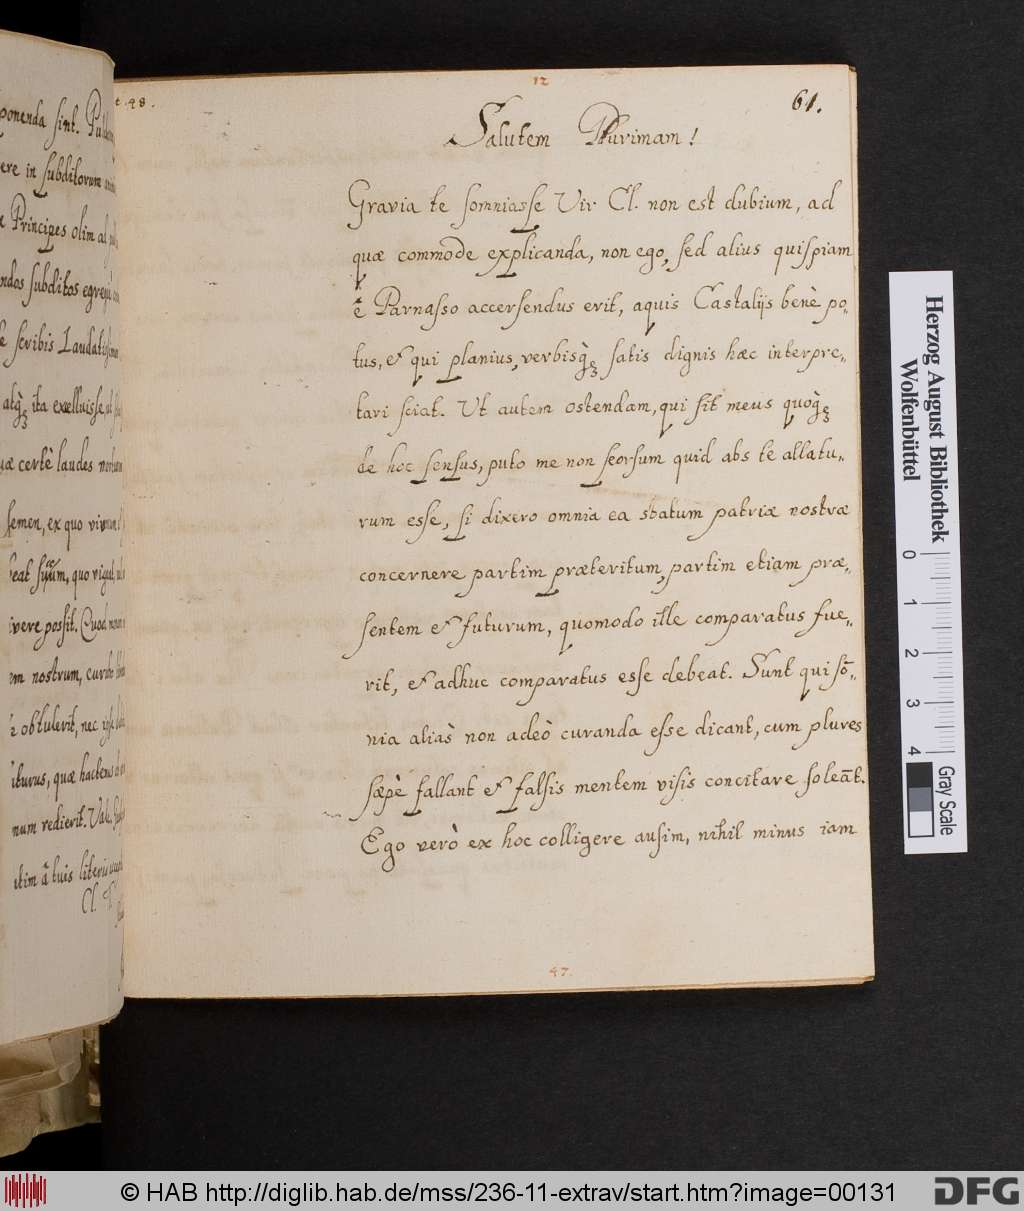 ponenda sint.
ere in subditorum
Principes olim
subditos
scribis
atq̃ ita
certè laudes
semen, ex quo
quo
vere possit. Quod
nostrum,
obtulerit, nec
iturus, quæ hactenus
num redierit. Vale.
ã tuis literis
Cl.
48.
12
61.
Salutem Plurimam!
Gravia te somniasse Vir Cl. non est dubium, ad
quæ commode explicanda, non ego, sed alius quispiam
ẽ Parnasso accersendus erit, aquis Castalijs benè po-
tus, et qui planius, verbisq̃ satis dignis hæc interpre-
tari sciat. Ut autem ostendam, qui sit meus quoq̃
de hoc sensus, puto me non seorsum quid abs te allatu-
rum esse, si dixero omnia ea statum patriæ nostræ
concernere partim præteritum, partim etiam præ-
sentem et futurum, quomodo ille comparatus fue-
rit, et adhuc comparatus esse debeat. Sunt qui sõ-
nia aliàs non adeò curanda esse dicant, cum plures
sæpè fallant et falsis mentem visis concitare soleãt.
Ego verò ex hoc colligere ausim, nihil minus iam
47.
Herzog August Bibliothek
Wolfenbüttel
0 1 2 3 4
Gray Scale
© HAB http://diglib.hab.de/mss/236-11-extrav/start.htm?image=00131
DFG